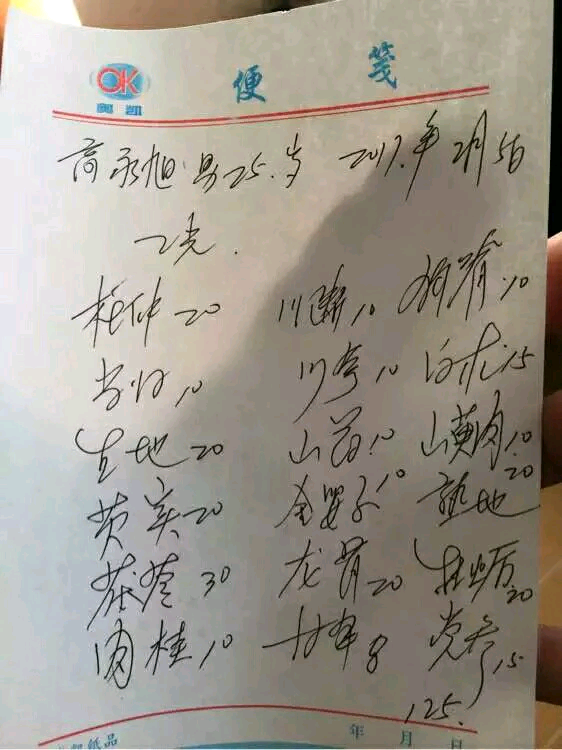 OK
奥凯
便 笺
高永旭 男 25.岁 2017.年2月5日
杜仲20 川断10 狗脊10
当归10 川芎10 白术15
生地20 山药10 山萸肉10
芡实20 金婴子10 熟地20
茯苓30 龙骨20 牡蛎20
肉桂10 甘草8 党参15
125.
年 月 日